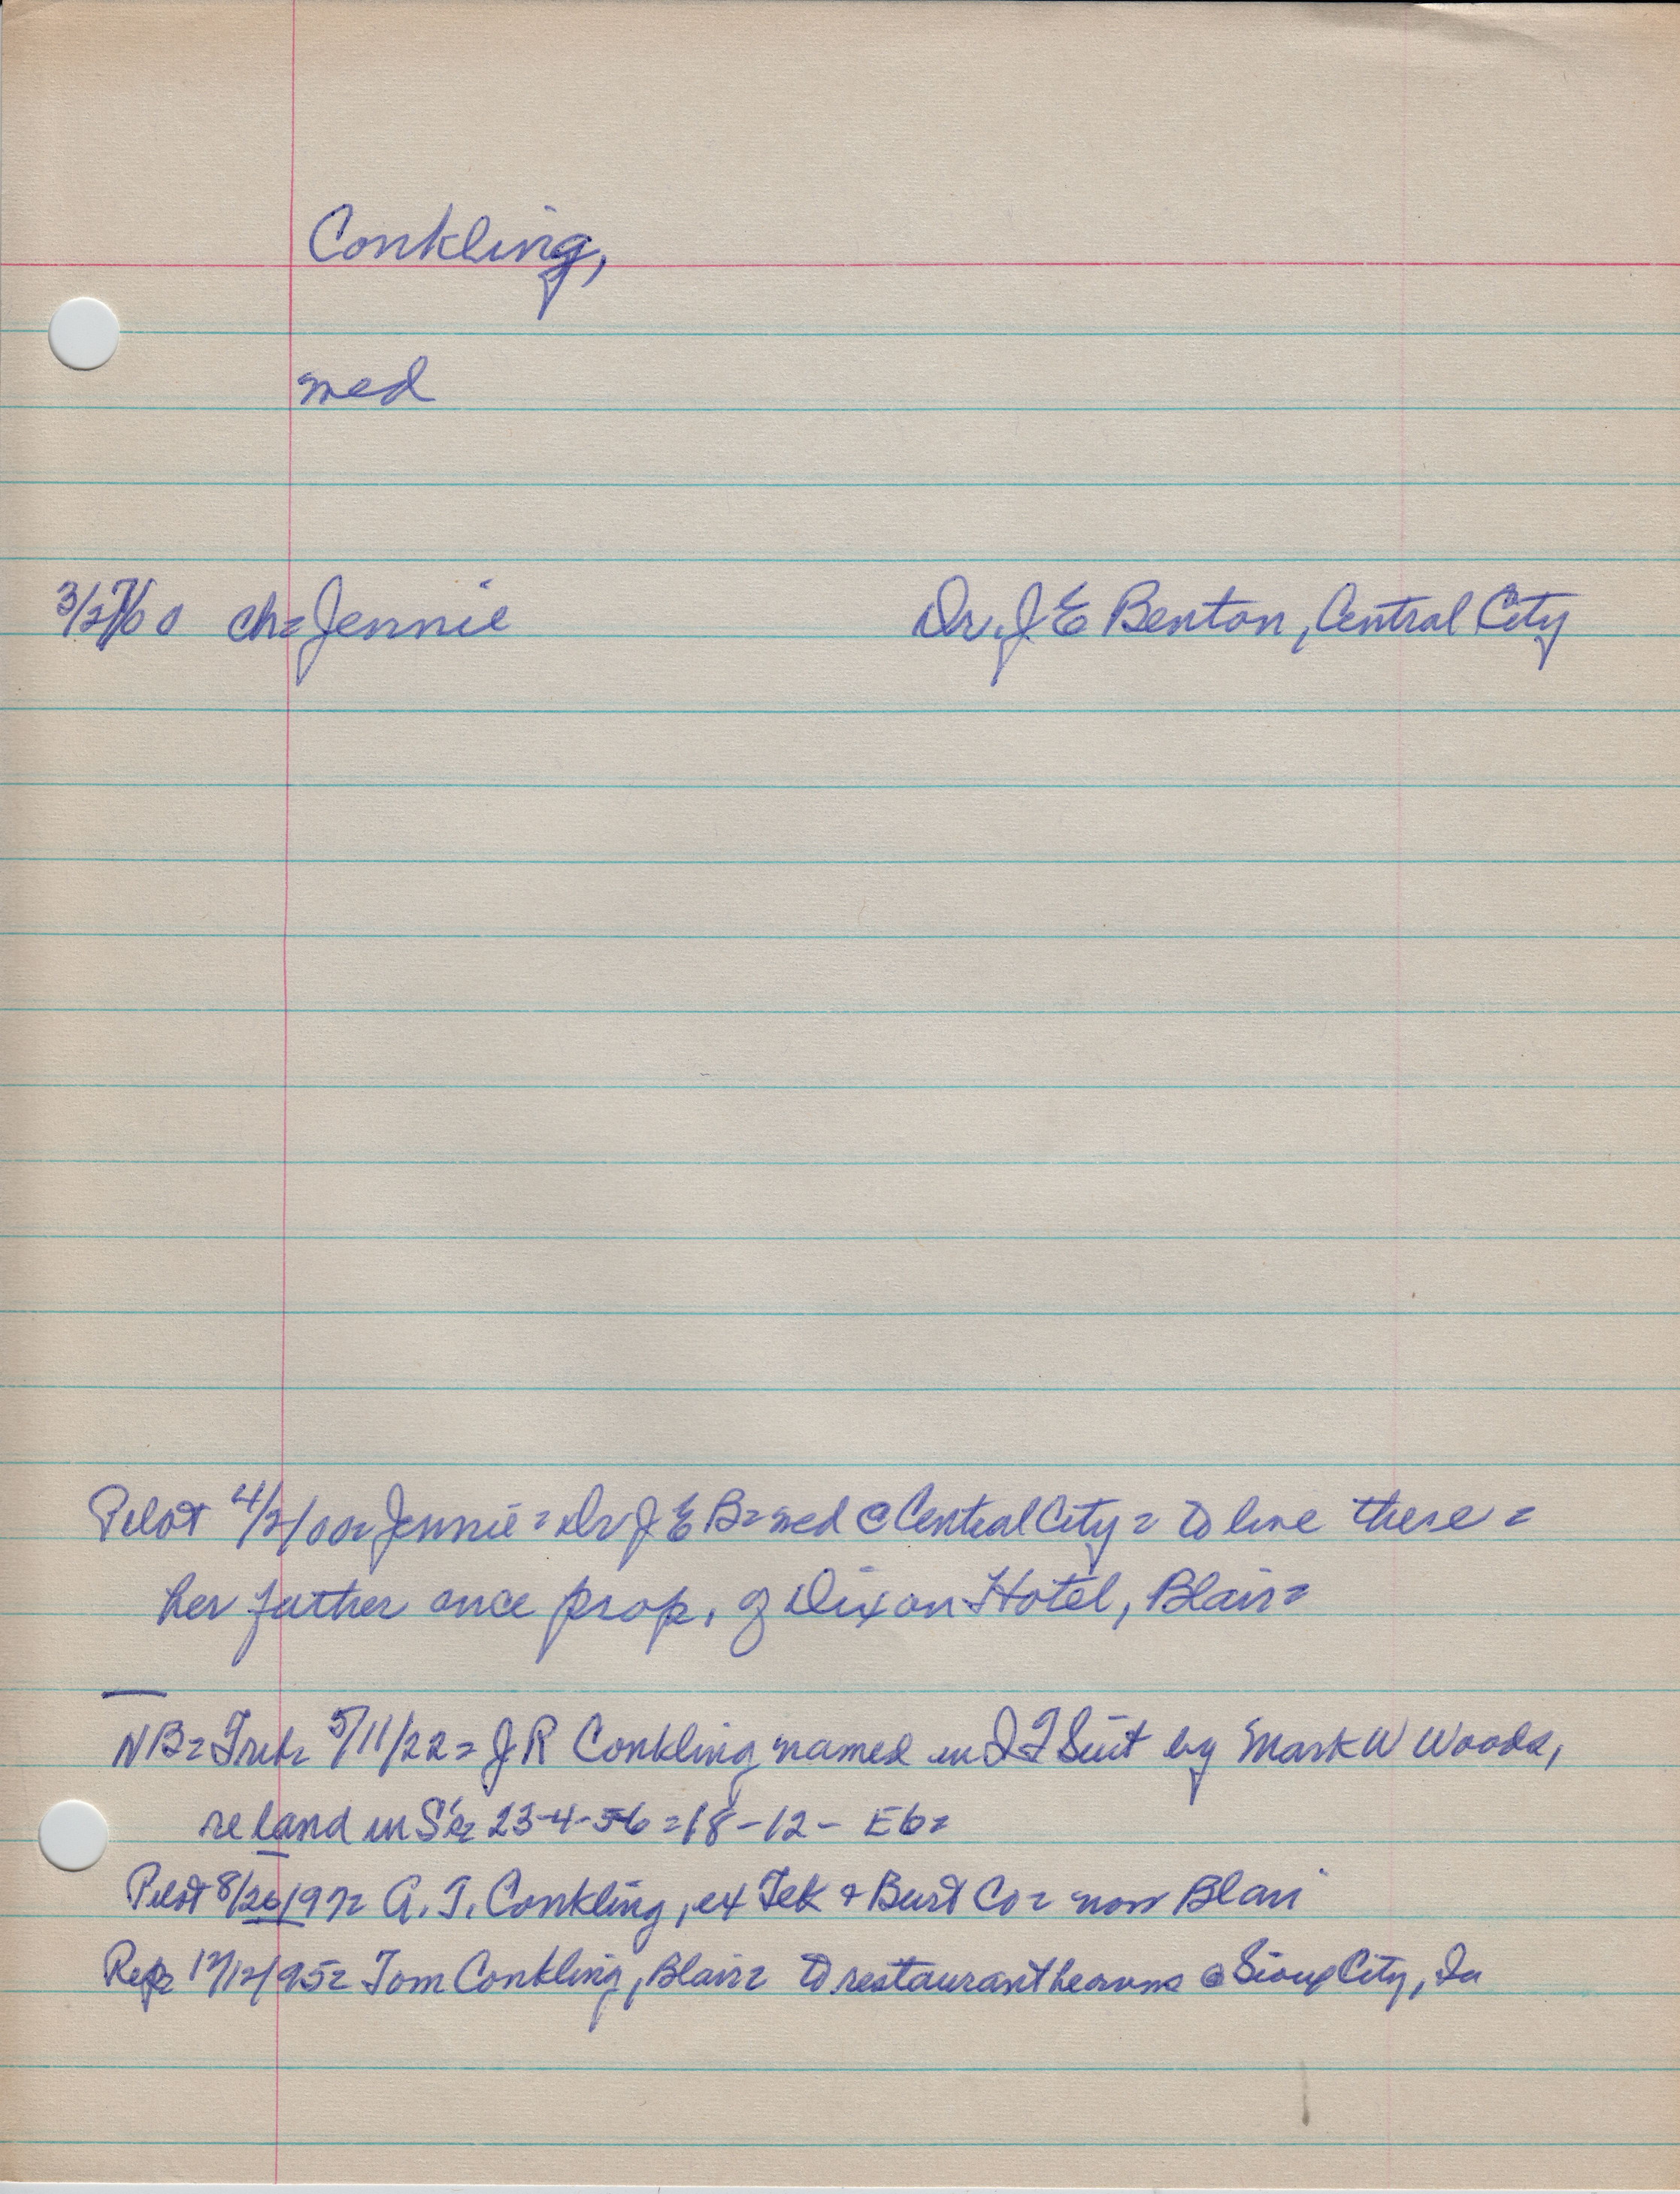 Conkling,
med
3/27/00 ch= Jennie Dr. J E Benton, Central City
Pilot 4/2/00= Jennie = Dr J E B= med @ Central City = to live there =
her father once prop. of Dixon Hotel, Blair=
NB= Trib= 5/11/22= J R Conkling named in Suit by Mark W Woods,
re land in 23-4-56 = 18-12- E6=
Pilot 8/26/97= A. T. Conkling, ex Tek & Burt Co = now Blair
Rep= 12/95= Tom Conkling, Blair= to restaurant @ Sioux City, Ia